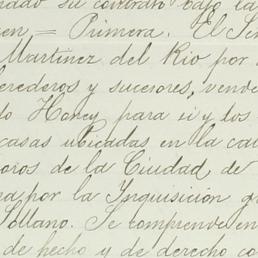 su contrato bajo la
en = Primera. El Señ
Martinez del Rio por
herederos y sucesores, vende
do Honey para si y los
casas ubicadas en la cal
oros de la Ciudad de
ra por la Ynquisición q
Sollano. Se comprende en
de hecho y de derecho co